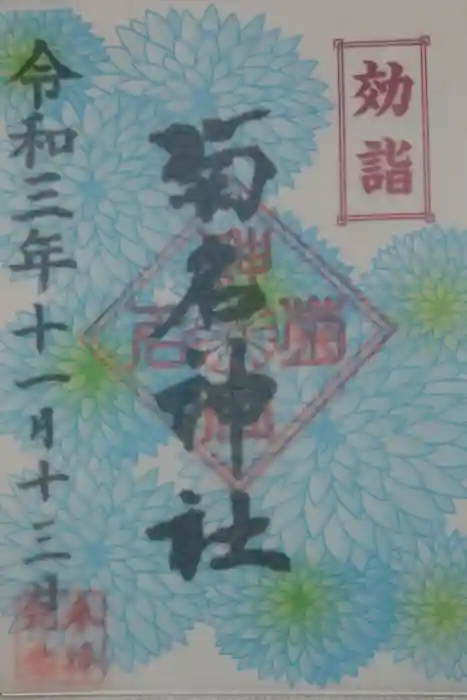 効詣
菊名神社
令和三年十一月十三日